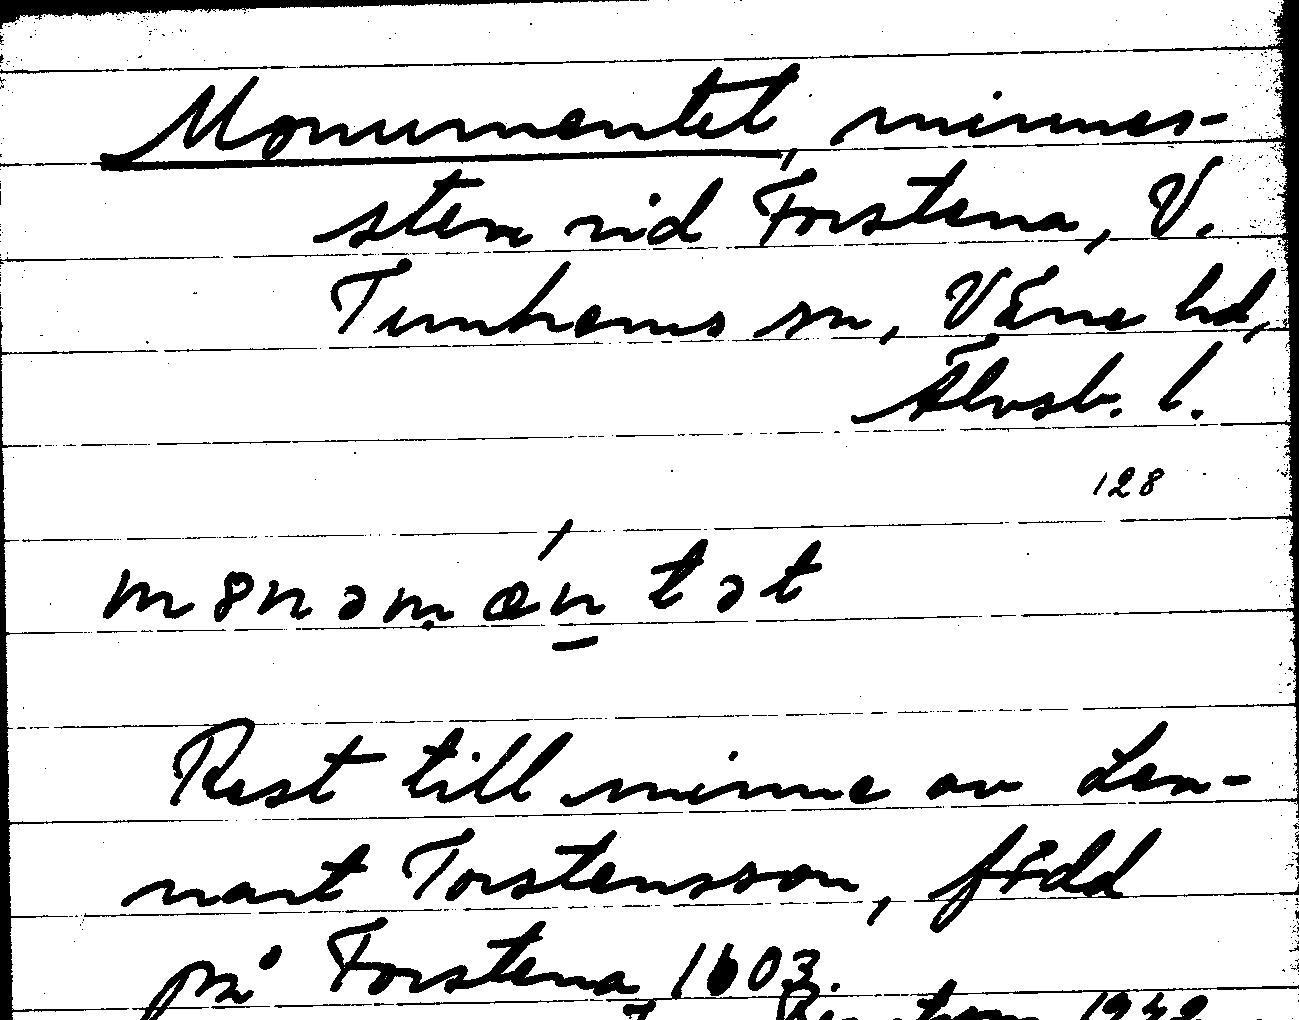 Monumentet, minnes-
sten vid Forstena, V.
Tunhems sn, Väne hd,
Älvsb. l.
128
mȣnəmǽntət
Rest till minne av Len-
nart Torstensson, född
på Forstena 1603.